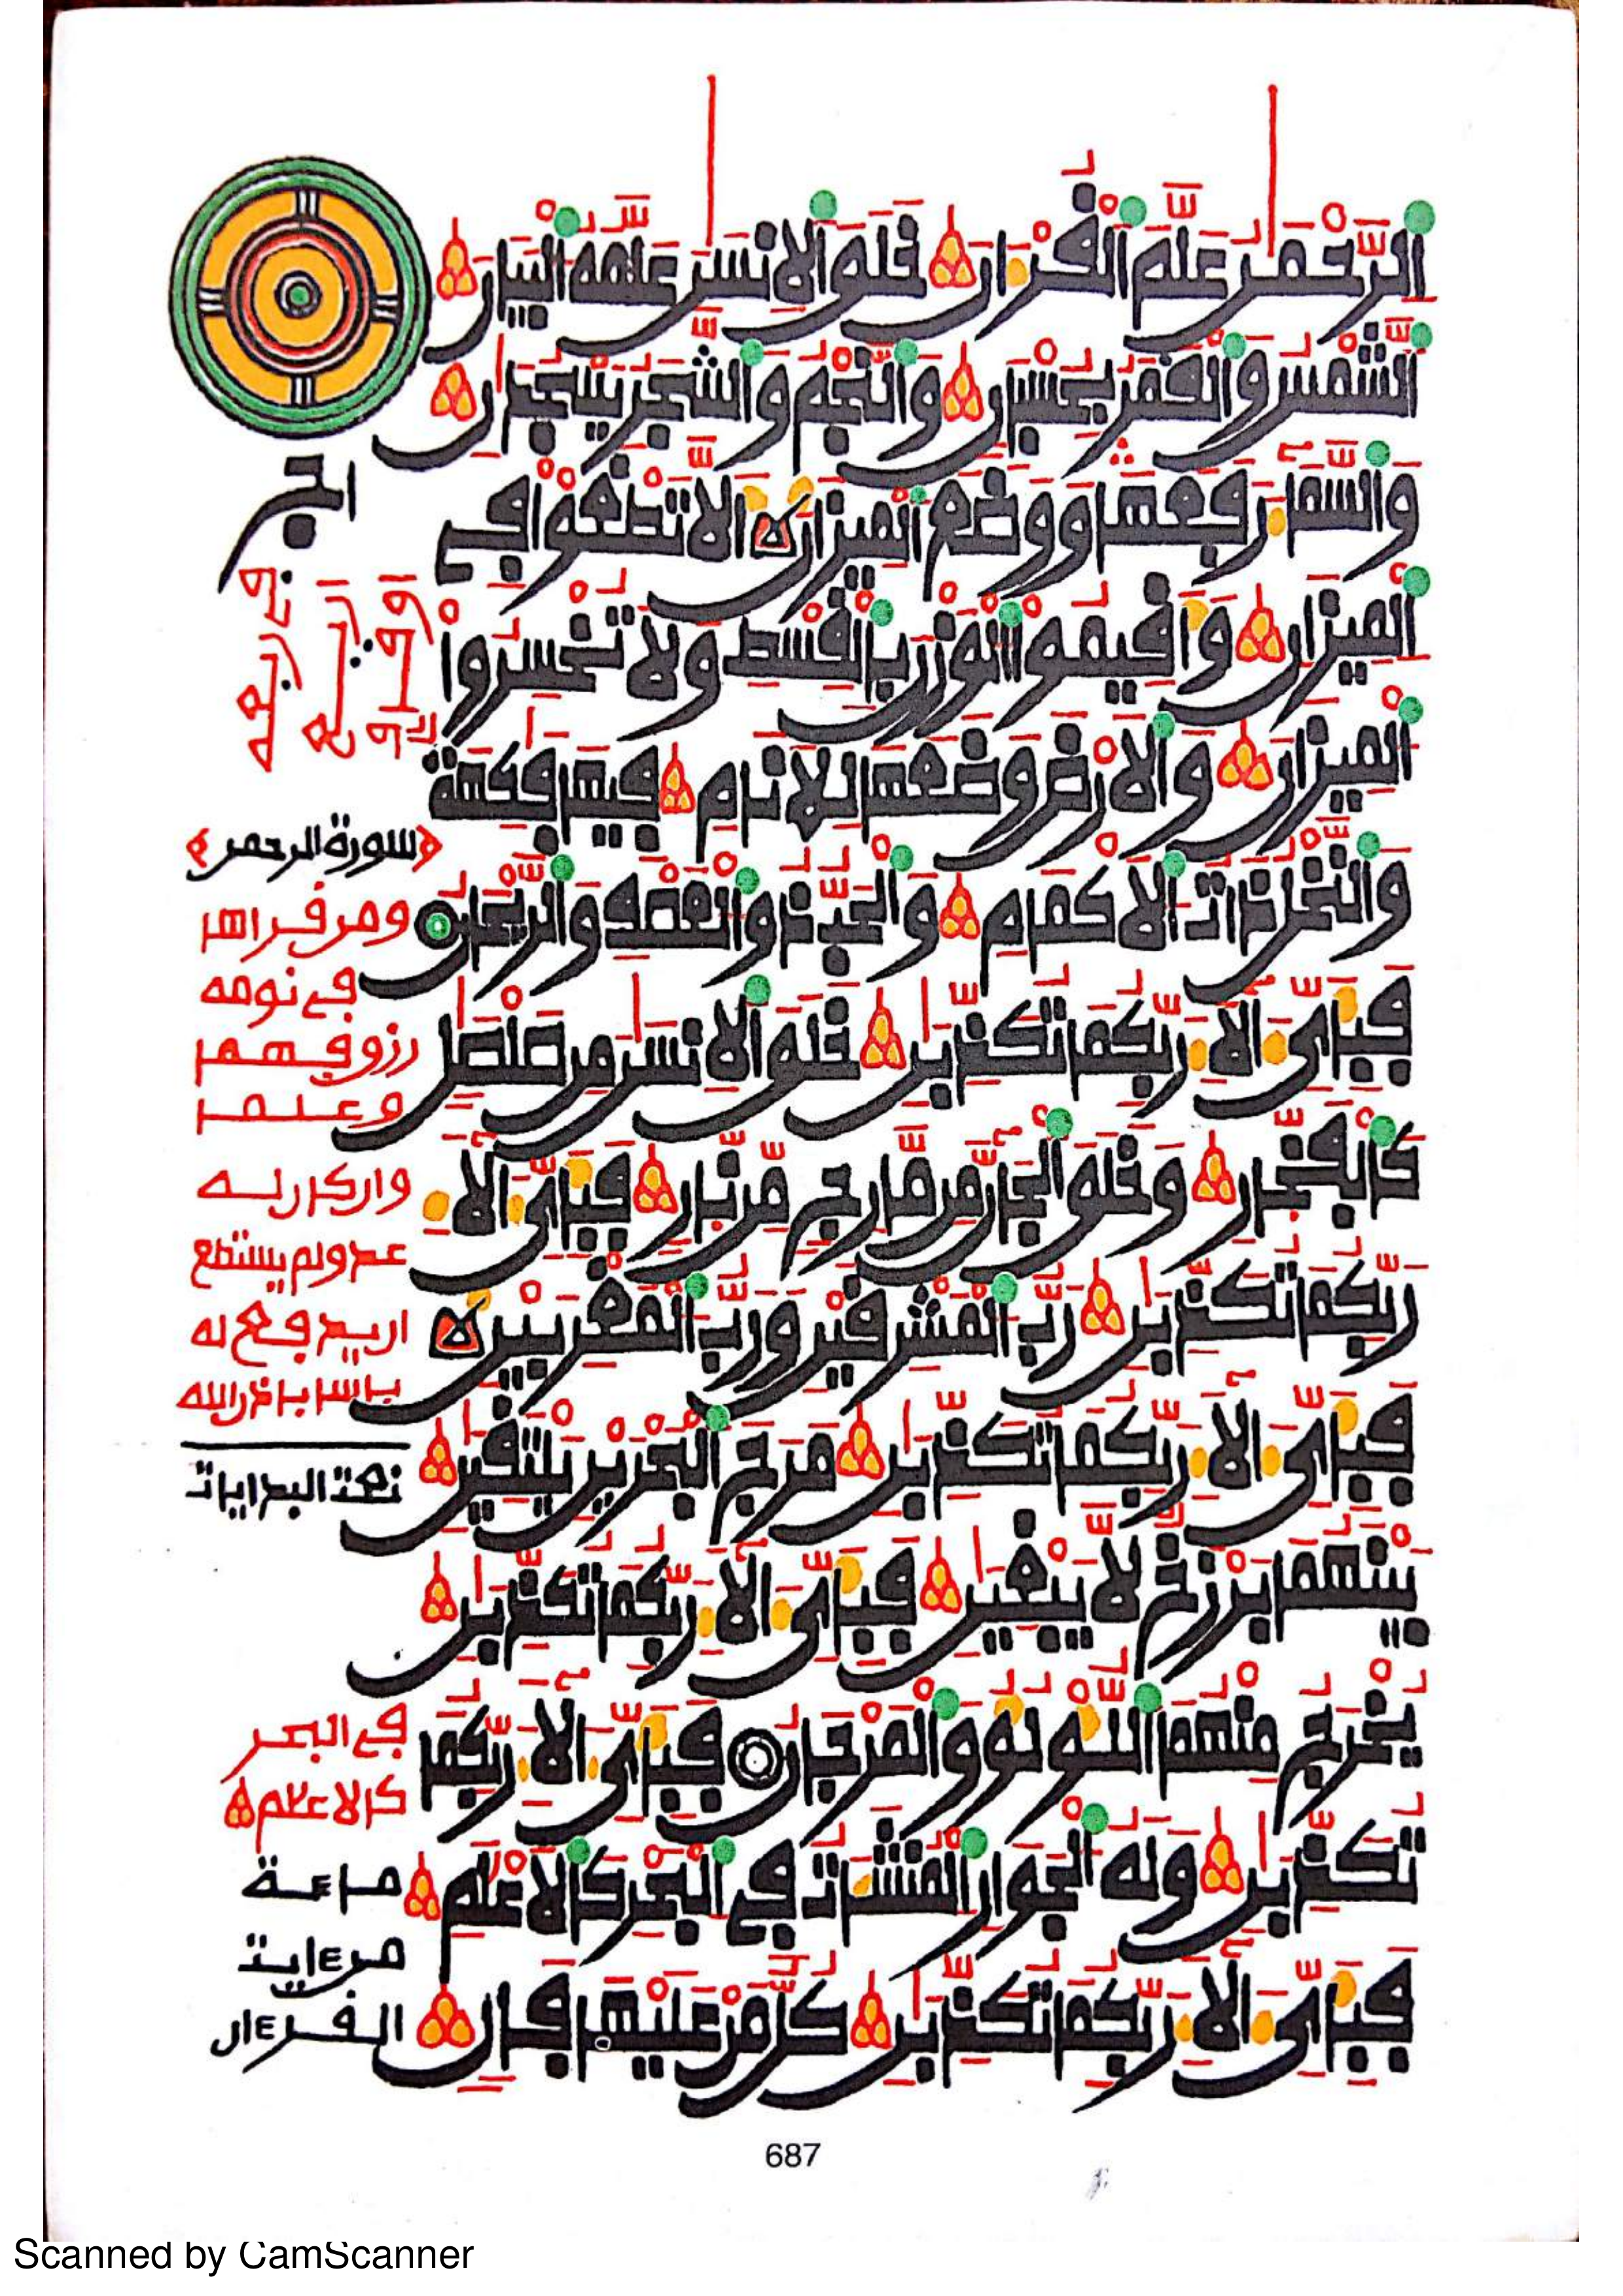 الرحمن علم القرءان خلق الانسن علمه البيان
الشمس والقمر بحسبان والنجم والشجر يسجدان
والسما رفعها ووضع الميزان الا تطغوا في
الميزان واقيموا الوزن بالقسط ولا تخسروا
الميزان والارض وضعها للانام فيها فكهة
والنخل ذات الاكمام والحب ذو العصف والريحان
فباي الا ربكما تكذبان خلق الانسن من صلصل
كالفخار وخلق الجان من مارج من نار فباي الا
ربكما تكذبان رب المشرقين ورب المغربين
فباي الا ربكما تكذبان مرج البحرين يلتقين
بينهما برزخ لا يبغين فباي الا ربكما تكذبان
يخرج منهما اللولو والمرجان فباي الا ربكما
تكذبان وله الجوار المنشات في البحر كالاعلم
فباي الا ربكما تكذبان كل من عليها فان
سورة الرحمن
ومن قراها
في نومه
وان كان له
عدو ولم يستطع
باسا باذن الله
في البحر
كالاعلام
من ءايت
القرءان
687
Scanned by CamScanner